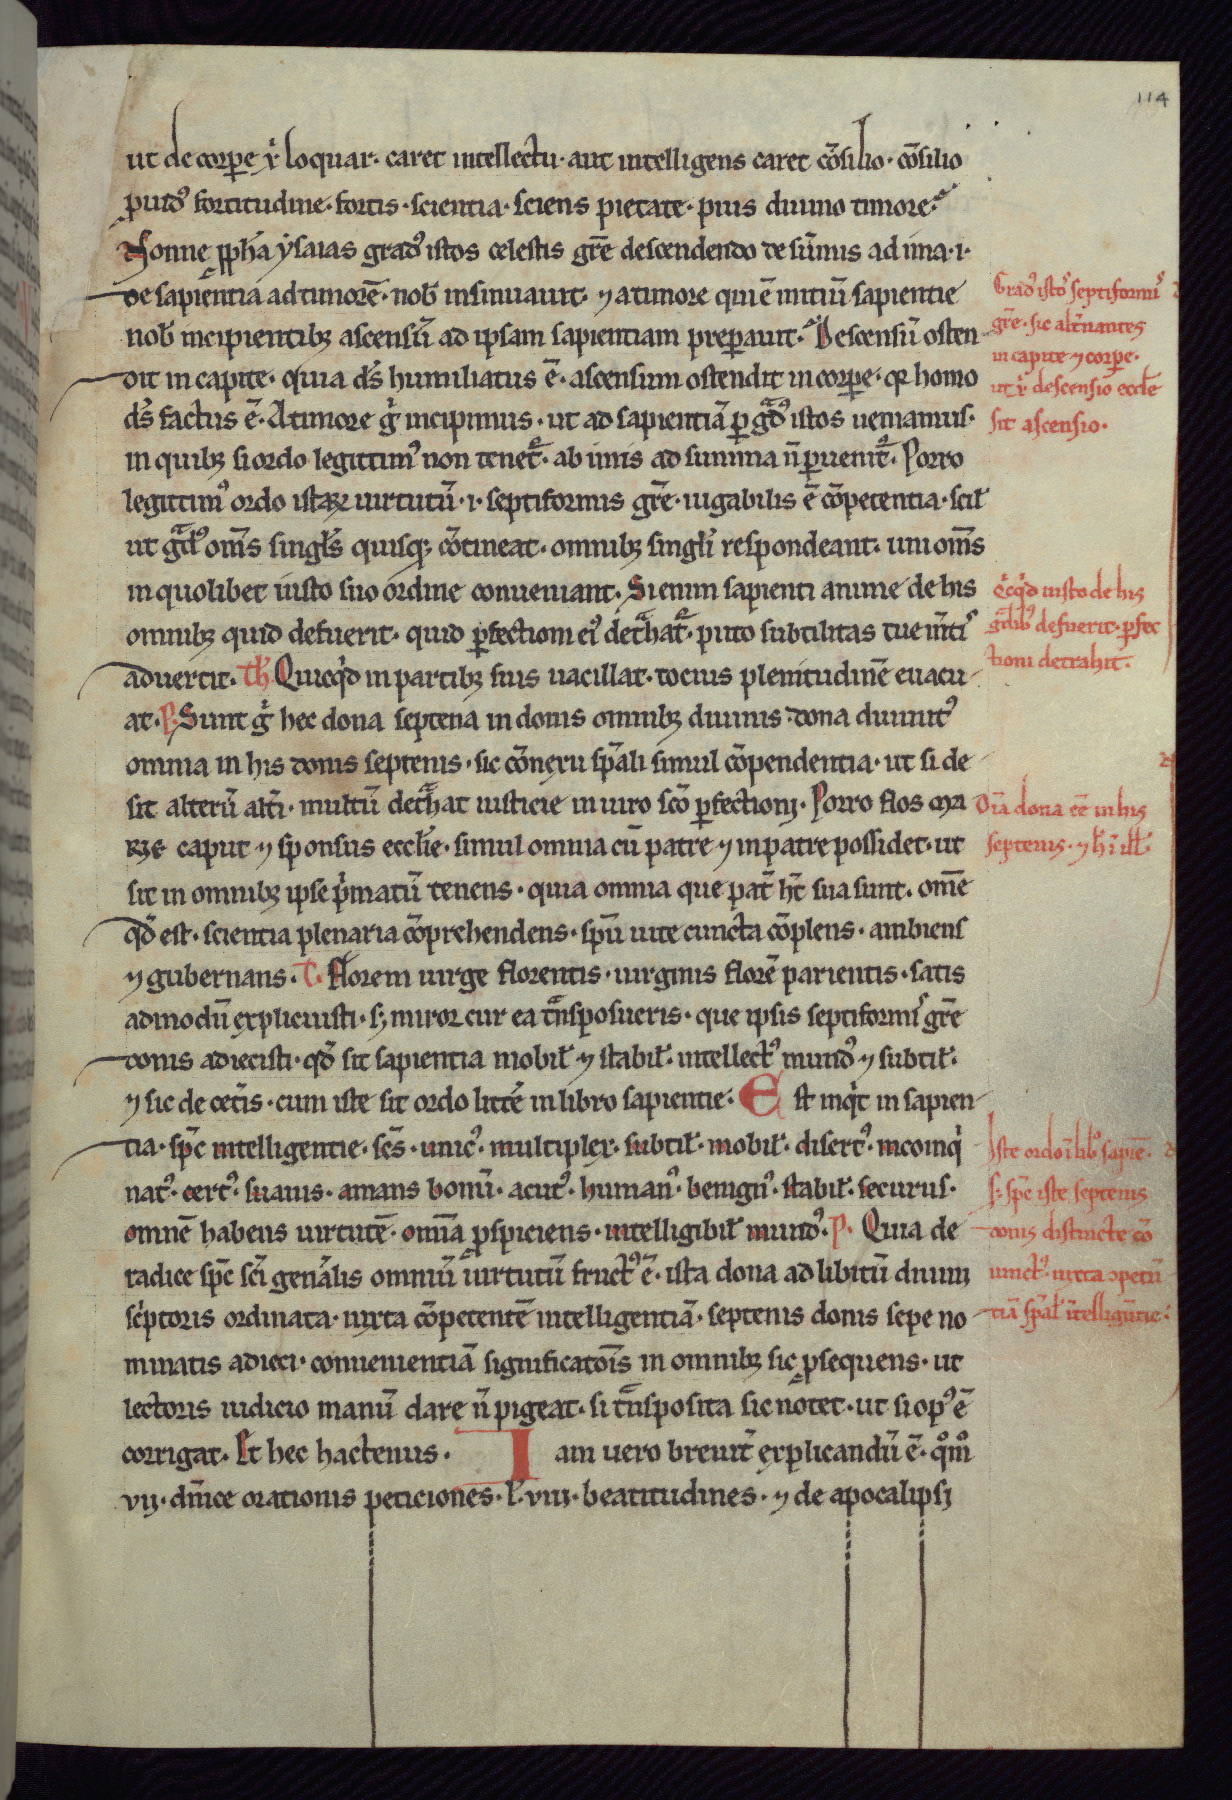 114
ut de corꝑe xp̄i loquar· caret intellectu· aut intelligens caret cōsilio· cōsilio
ꝓuidꝰ fortitudine· fortis· scientia· sciens pietate· pius diuino timore·
Nonne ꝓph̄a ysaias gradꝰ istos celestis gr̄e descendendo de sūmis ad ima· i·
de sapientia ad timorē· nob̄ insinuauit· ⁊ a timore qui ē initiū sapientie
nob̄ incipientibꝫ ascensū ad ipsam sapientiam preꝑauit· Descensū osten
dit in capite· quia ds̄ humiliatus ē· ascensum ostendit in corꝑe· qꝛ homo
ds̄ factus ē· A timore gͥ incipimus· ut ad sapientiā ꝑ gͣdꝰ istos ueniamus·
in quibꝫ si ordo legittimꝰ non tenet᷑· ab imis ad summa n̄ ꝑuenit᷑· Porro
legittimꝰ ordo istaꝝ uirtutū· i· septiformis gr̄e· iugabilis ē cōpetentia· scil̄
ut gͣdꝰ om̄s singl̄s quisqꝫ cōtineat· omnibꝫ singl̄i respondeant· uni om̄s
in quolibet iusto suo ordine conueniant· Si enim sapienti anime de his
omnibꝫ quid defuerit· quid ꝑfectioni eiꝰ det̄hat᷑· puto subtilitas tue m̄tis
aduertit· Th̄ Quicqͥd in partibꝫ suis uacillat· tocius plenitudinē euacu
at· P· Sunt gͥ hec dona septena in donis omnibꝫ diuinis· dona diuinitꝰ
omnia in his donis septenis· sic cōnexu sp̄ali simul cōpendentia· ut si de
sit alterū alt̄i· multū det̄hat iusticie in uiro sc̄o ꝑfectionis· Porro flos ma
rie caput ⁊ sponsus eccl̄ie· simul omnia cū patre ⁊ in patre possidet· ut
sit in omnibꝫ ipse pͥmatū tenens· quia omnia que pat̄ h̄t sua sunt· om̄e
qd̄ est· scientia plenaria cōprehendens· spū uite cuncta cōplens· ambiens
⁊ gubernans· T· Florem uirge florentis· uirginis florē parientis· satis
admodū explicuisti· sꝫ miror cur ea tͣnsposueris· que ipsis septiformis gr̄e
donis adiecisti· qd̄ sit sapientia mobil̄ ⁊ stabil̄· intellectꝰ mundꝰ ⁊ subtil̄·
⁊ sic de cet̄is· cum iste sit ordo litt̄e in libro sapientie· Est inqͥt in sapien
tia· spc̄ intelligentie· sc̄s· unicꝰ· multiplex· subtil̄· mobil̄· disertꝰ· incoinqͥ
natꝰ· certꝰ· suauis· amans bonū· acutꝰ· humanꝰ· benignꝰ· stabil̄· securus·
omnē habens uirtutē· om̄ia ꝓspiciens· intelligibil̄ mundꝰ· P· Quia de
radice spc̄ sc̄i gen̄alis omniū uirtutū fructꝰ ē· ista dona ad libitū diuini
sc̄ptoris ordinata· iuxta cōpetentē intelligentiā· septenis donis sepe no
minatis adieci· conuenientiā significatōis in omnibꝫ sic ꝓsequens· ut
lectoris iudicio manū dare n̄ pigeat· si tͣnsposita sic notet· ut si opꝰ ē
corrigat· Et hec hactenus· Iam uero breuit̄ explicandū ē· qͦmͦ
vii· dn̄ice orationis peticiones· l̄· viii· beatitudines· ⁊ de apocalipsi
Gradꝰ istos septiformis
gr̄e· sic alt̄nantes
in capite ⁊ corꝑe·
ut xp̄i descensio eccl̄e
sit ascensio·
Qͥcqͥd iusto de his
gͣdibꝰ defuerit· ꝑfec
tioni detrahit·
Om̄ia dona ēē in his
septenis· ⁊ h̄ ī ill̄
Iste ordo ī libꝰ sapiē·
sꝫ spc̄ iste septenis
donis distincte cō
iunctꝰ· iuxta ꝯpetēn
tiā sp̄al̄ intelligentie·